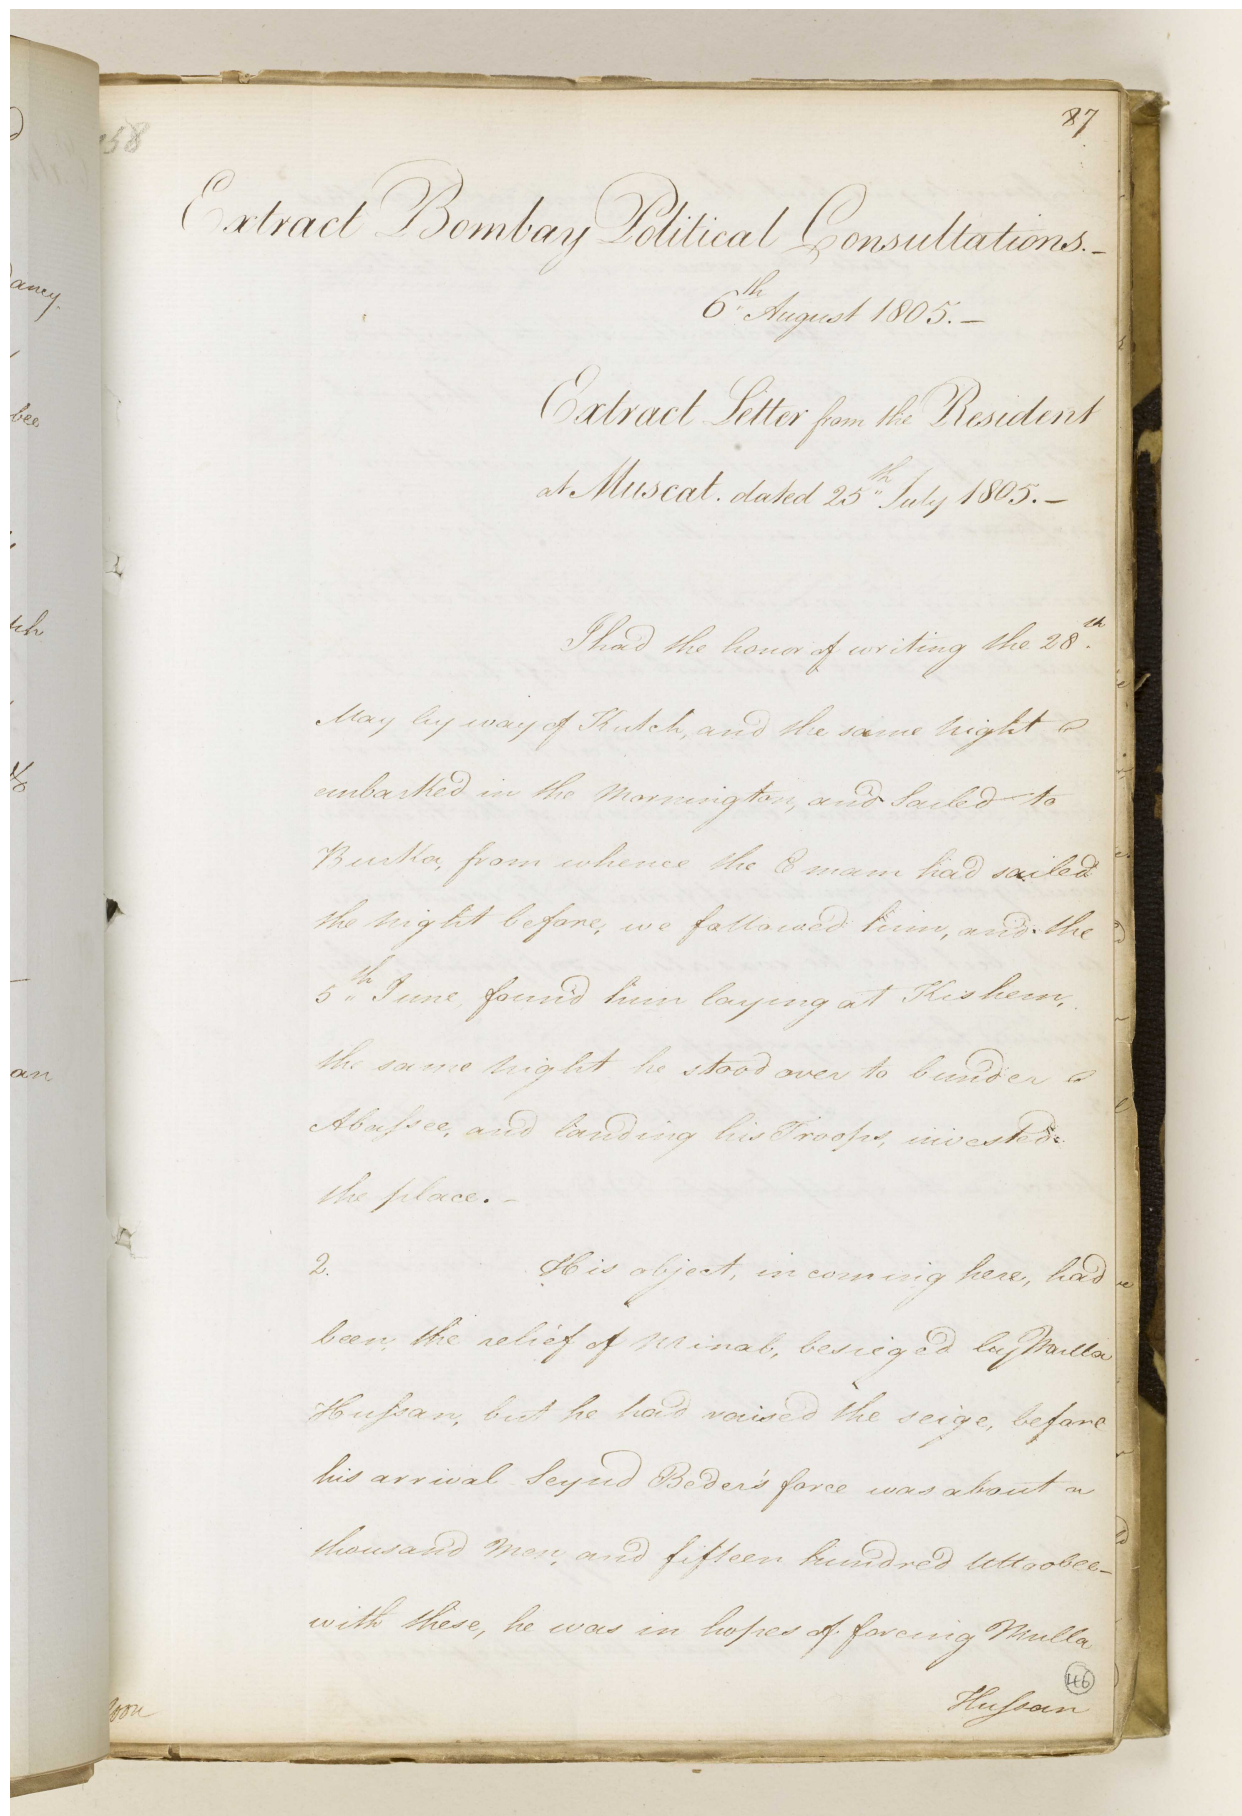 87
58
Extract Bombay Political Consultations.–
6th August 1805.–
Extract Letter from the Resident
at Muscat. dated 25th July 1805.–
I had the honor of writing the 28th.
May by way of Kutch, and the same night
embarked in the Mornington, and Sailed to
Burka, from whence the Emam had sailed
the night before, we followed him, and the
5th June, found him laying at Kishem,
the same night he stood over to bunder
Abassee, and landing his Troops, invested
the place.–
2. His object, in coming here, had
been, the relief of Minab, besieged by Mulla
Hussan, but he had raised the seige, before
his arrival Seyud Beder's force was about a
thousand Men, and fifteen hundred Uttoobee–
with these, he was in hopes of forcing Mulla
46
Hussan